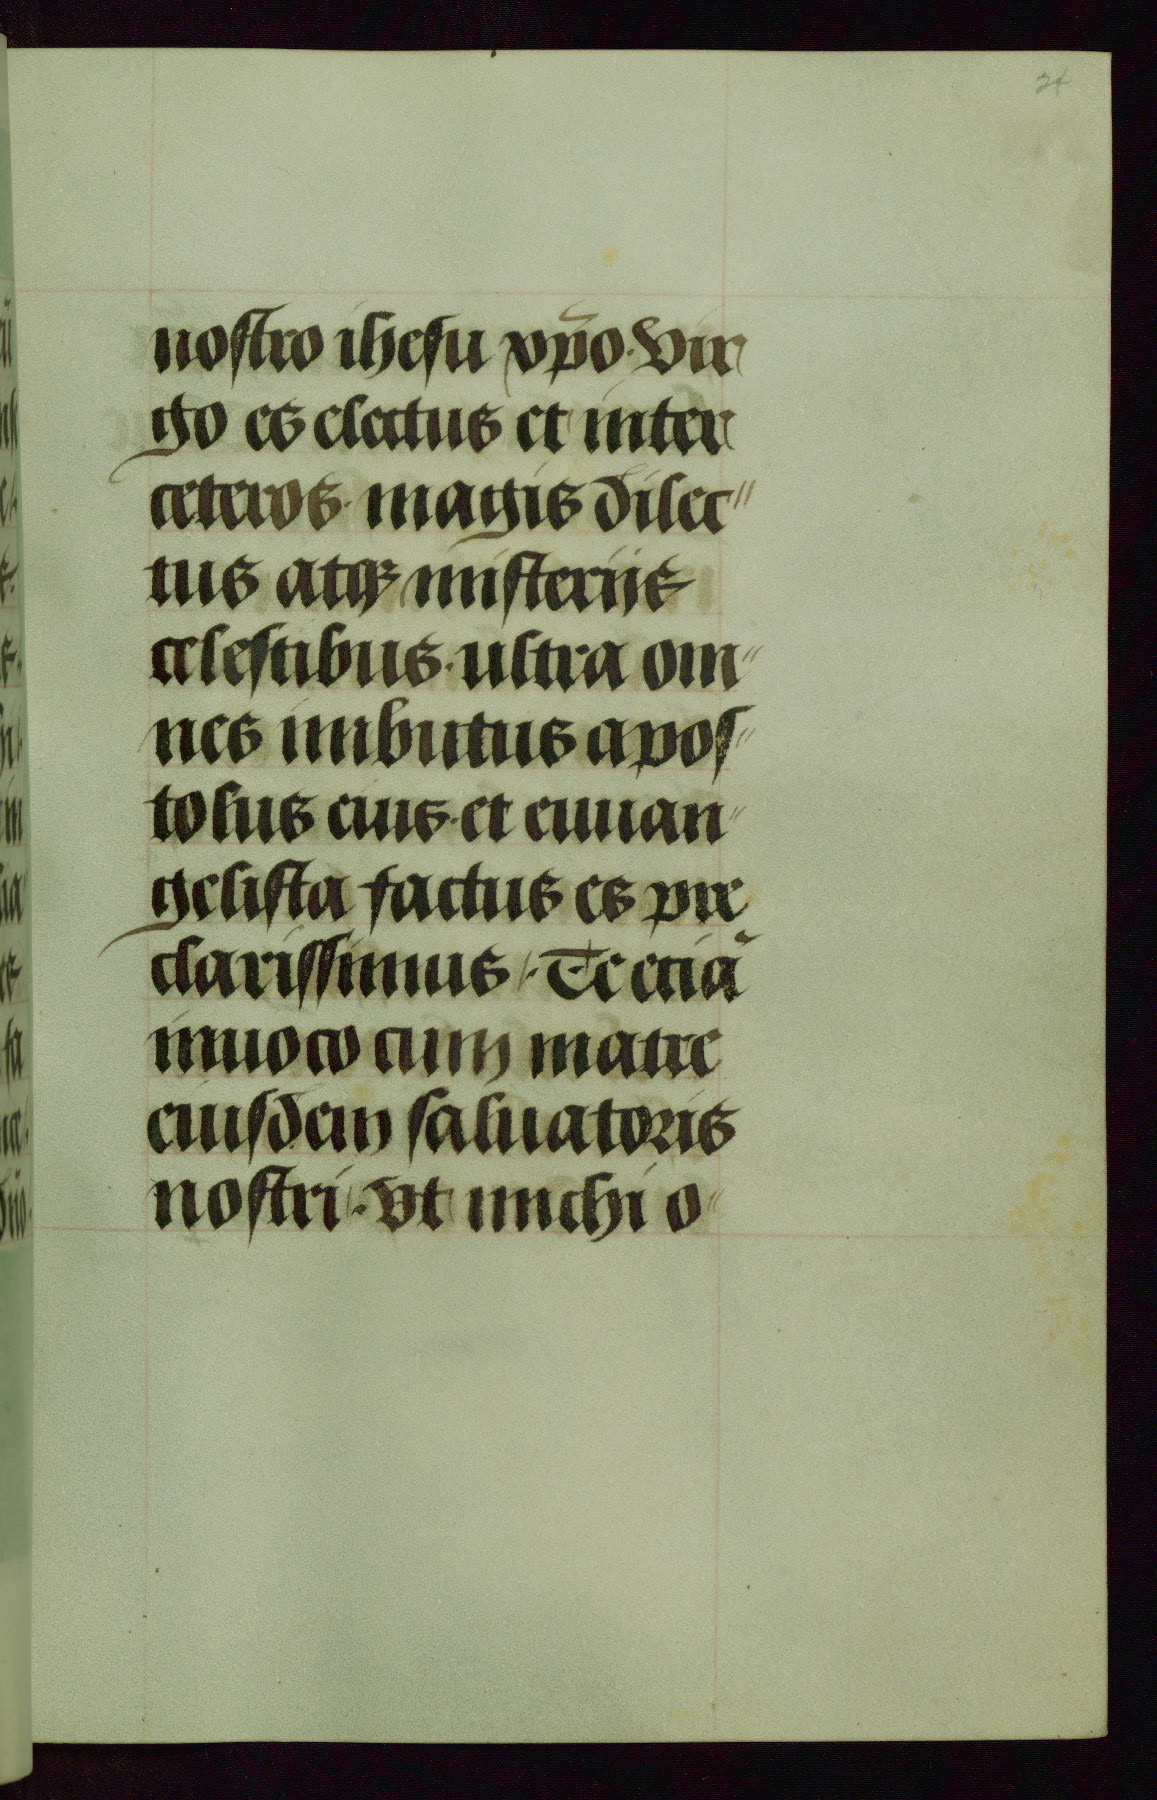 24
nostro ihesu xp̄o. Vir
go es electus et inter
ceteros. magis dilec"
tus atqꝫ misteriis
celestibus. ultra om"
nes imbutus apos"
tolus eius. et euuan"
gelista factus es pre
clarissimus /. Te etiā
inuoco cum matre
eiusdem saluatoris
nostri. Vt michi o"